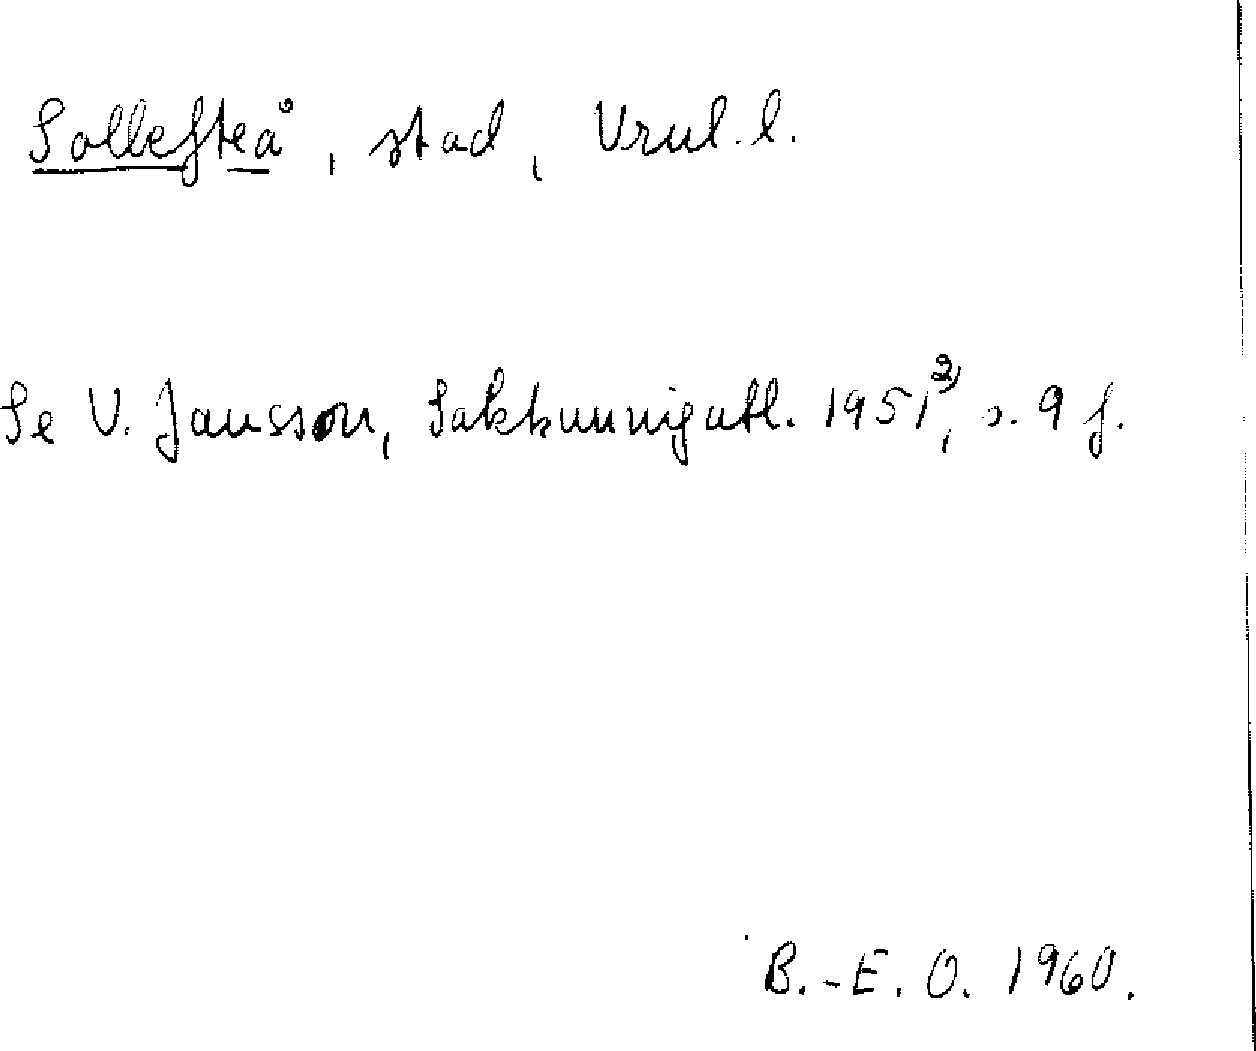 Sollefteå, stad, Vrnl. l.
Se V. Jansson, Sakkunnigutl. 1951²⁾, s. 9 f.
B.-E. O. 1960.